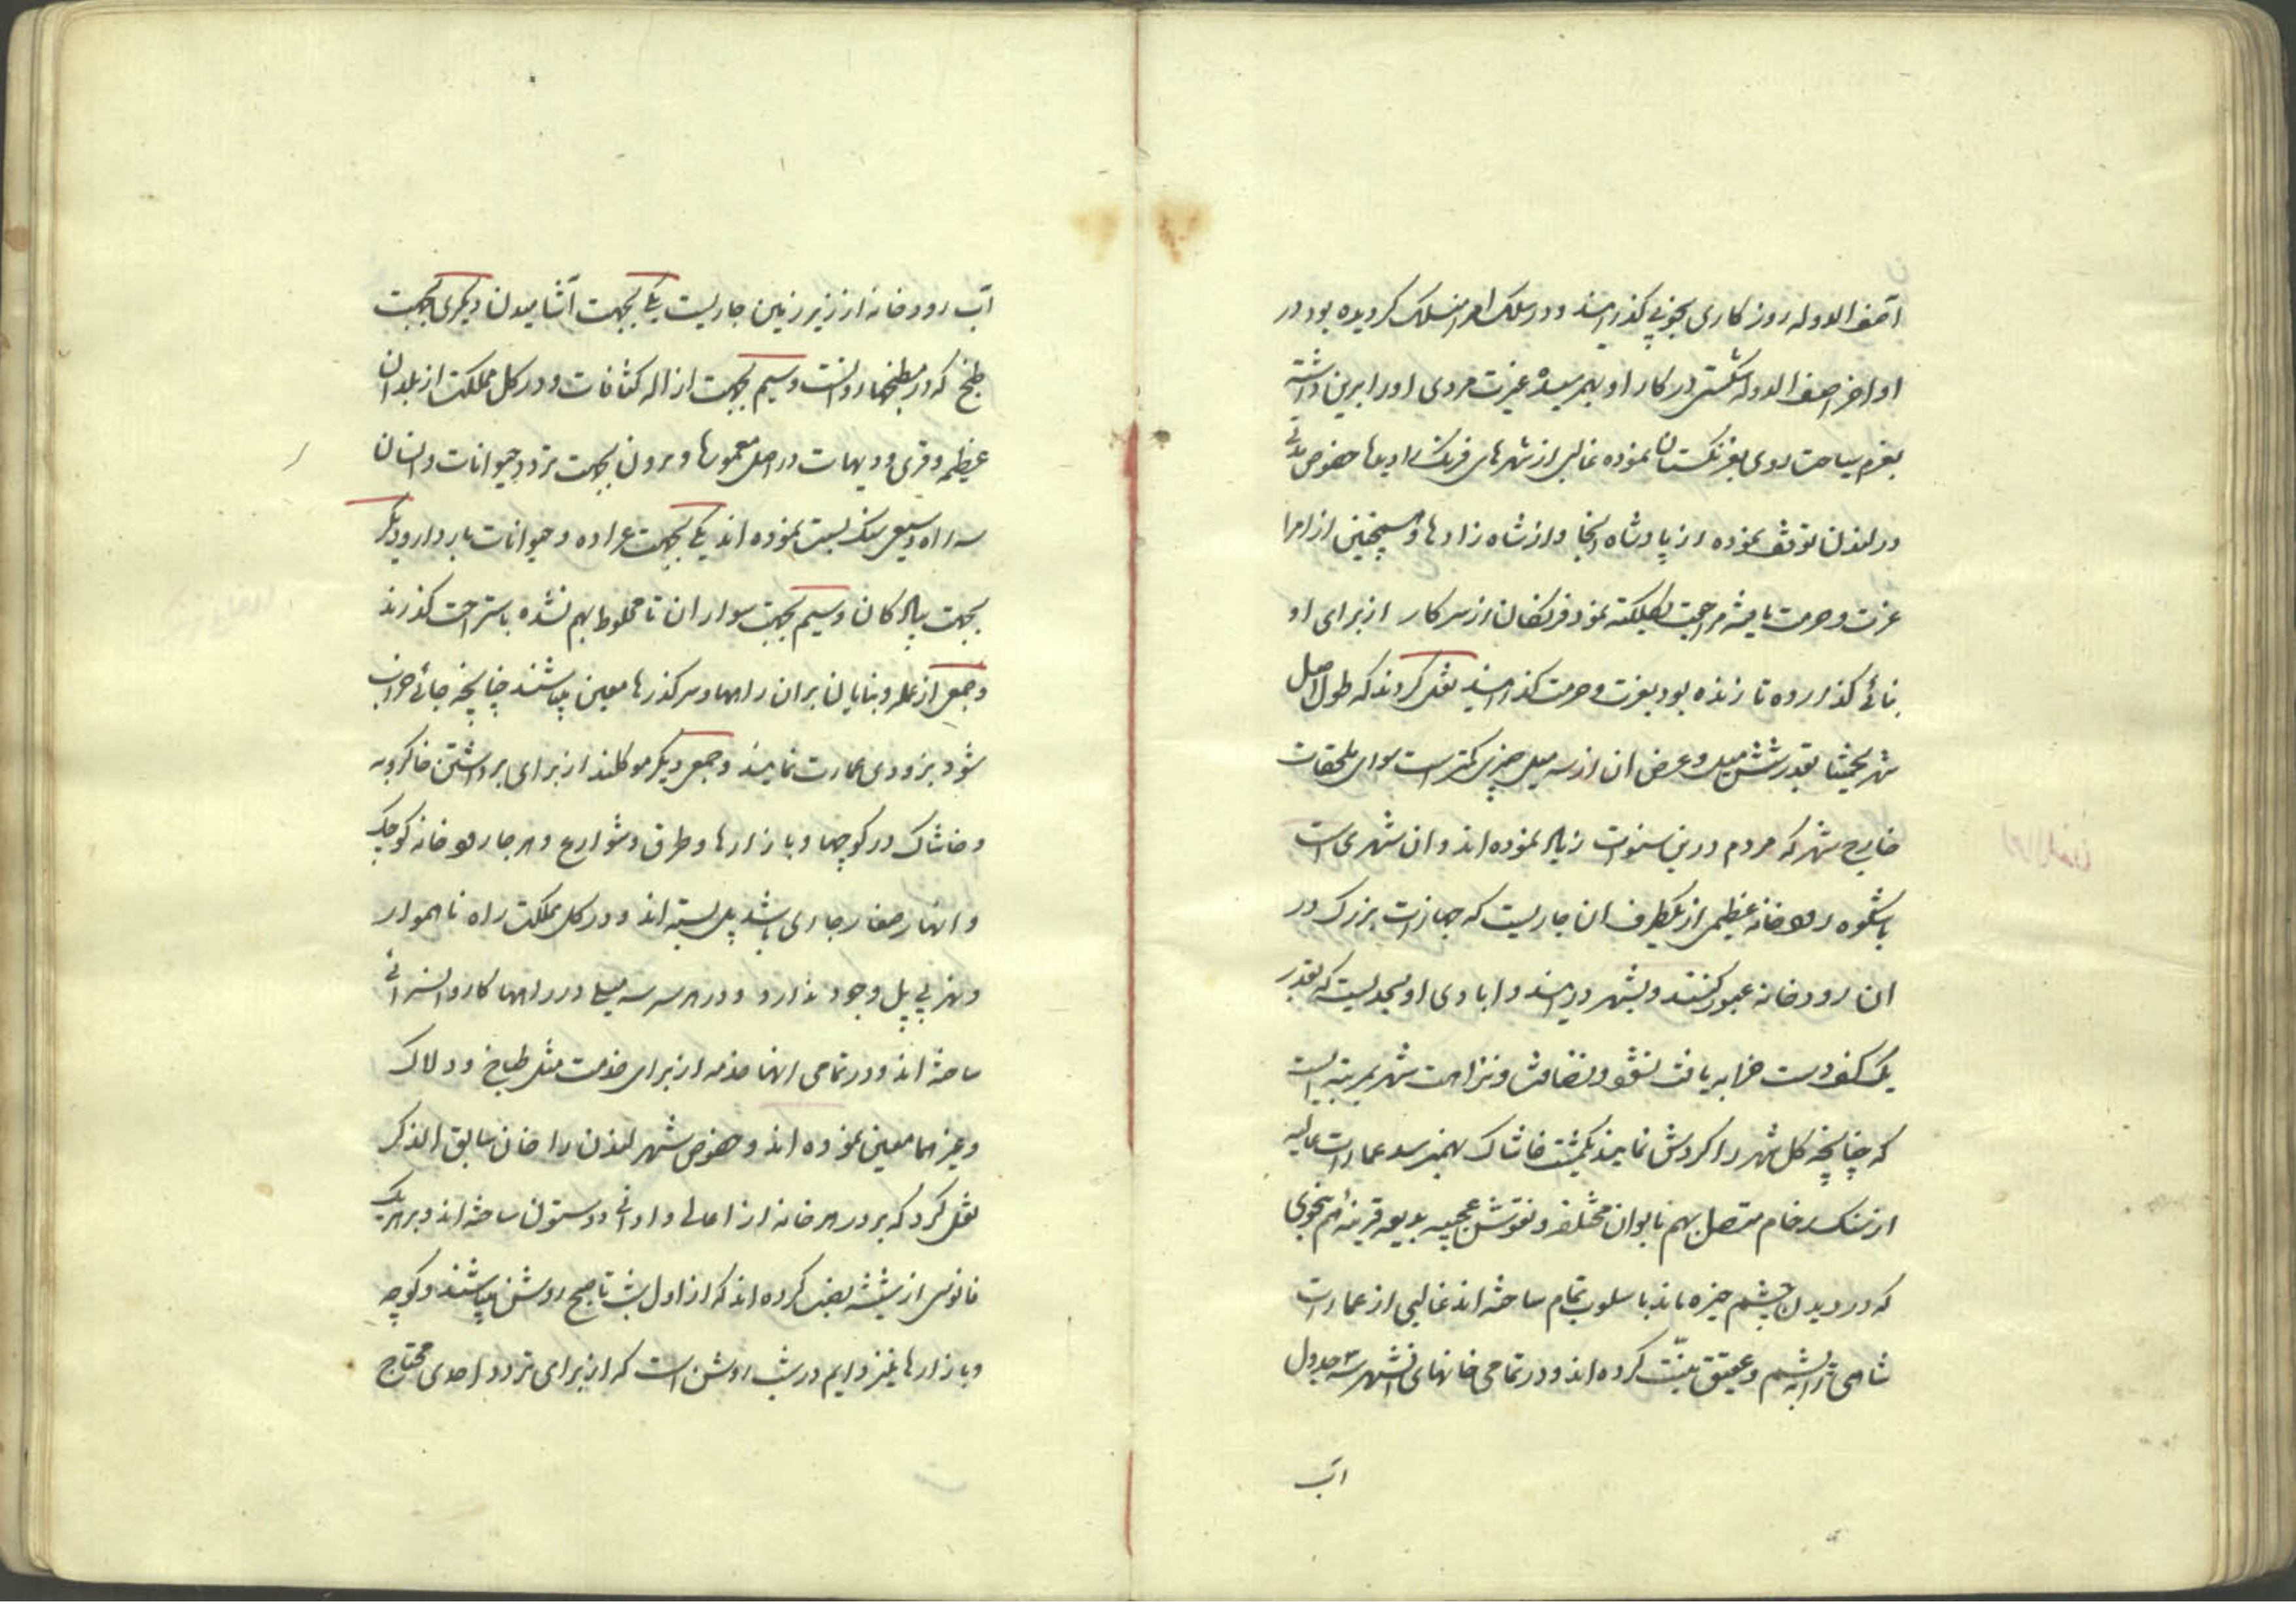 آصف الدوله روزکاری بخوبی کذرانید و در سلک امرا منسلک کردیده بود در
اواخر آصف الدوله شکستی در کار او بهم رسیده غیرت مردی او را برین داشته
بعزم سیاحت روی بفرنکستان نموده غالبی از شهرهای فرنک را دید اما خصوص مدتی
در لندن توقف نموده از پادشاه انجا و از شاه زادها و همچنین از امرا
عزت و حرمت یافته مراجعت بکلکته نمود فرنکان از سرکار از برای او
بنائی کذارده تا زنده بود بعزت و حرمت کذرانید نقل کردند که طول اصل
شهر تخمینا بقدر شش میل و عرض ان از سه میل چیزی کمتر است سوای ملحقات
خارج شهر که مردم درین سنوات زیاد نموده اند و ان شهری است
باشکوه رودخانه عظیمی از یکطرف ان جاریست که جهازات بزرک در
ان رودخانه عبور کنند و بشهر درایند و ابادی او بحدیست که بقدر
یک کف دست خرابه یافت نشود و نظافت و نزاهت شهر بمرتبه ایست
که چنانچه کل شهر را کردش نمایند یکمشت خاشاک بهم نرسد عمارات عالیه
از سنک رخام متصل بهم بالوان مختلفه و نقوش عجیبه بدیعه قرینه هم بنحوی
که در دیدن چشم خیره ماند باسلوب تمام ساخته اند غالبی از عمارات
شاهی را یشم و عقیق منبت کرده اند و در تمامی خانهای انشهر سه جدول
آب
آب رودخانه از زیر زمین جاریست یکی بجهت آشامیدن و دیکری بجهت
طبخ که در مطبخها روانست و سیم بجهت ازاله کثافات و در کل مملکت از بلدان
عظیمه و قری و دیهات در اصل معموره و برون بجهت تردد حیوانات و انسان
سه راه وسیع سنک بست نموده اند یکی بجهت عراده و حیوانات باردار و دیکر
بجهت پیادکان و سیم بجهت سواران تا مخلوط بهم نشده باستراحت کذرند
و جمعی از عمله و بنایان بران راهها و سرکذرها معین میباشند چنانچه جائی خراب
شود بزودی عمارت نمایند و جمعی دیکر موکلند از برای برداشتن خاکروبه
و خاشاک در کوچها و بازارها و طرق و شوارع و هر جا رودخانه کوچک
و انهار صغار جاری باشد پل بسته اند و در کل مملکت راه ناهموار
و نهر بی پل وجود ندارد و در هر سه سه میل در راهها کاروانسرائی
ساخته اند و در تمامی انها خدمه از برای خدمت مثل طباخ و دلاک
و غیرهما معین نموده اند و خصوص شهر لندن را خان سابق الذکر
نقل کرد که بر در هر خانه از اعالی و ادانی دو ستون ساخته اند و بر هر یک
فانوس از شیشه نصب کرده اند که از اول شب تا صبح روشن میباشند و کوچه
و بازارها نیز دایم در شب روشن است که از برای تردد احدی محتاج